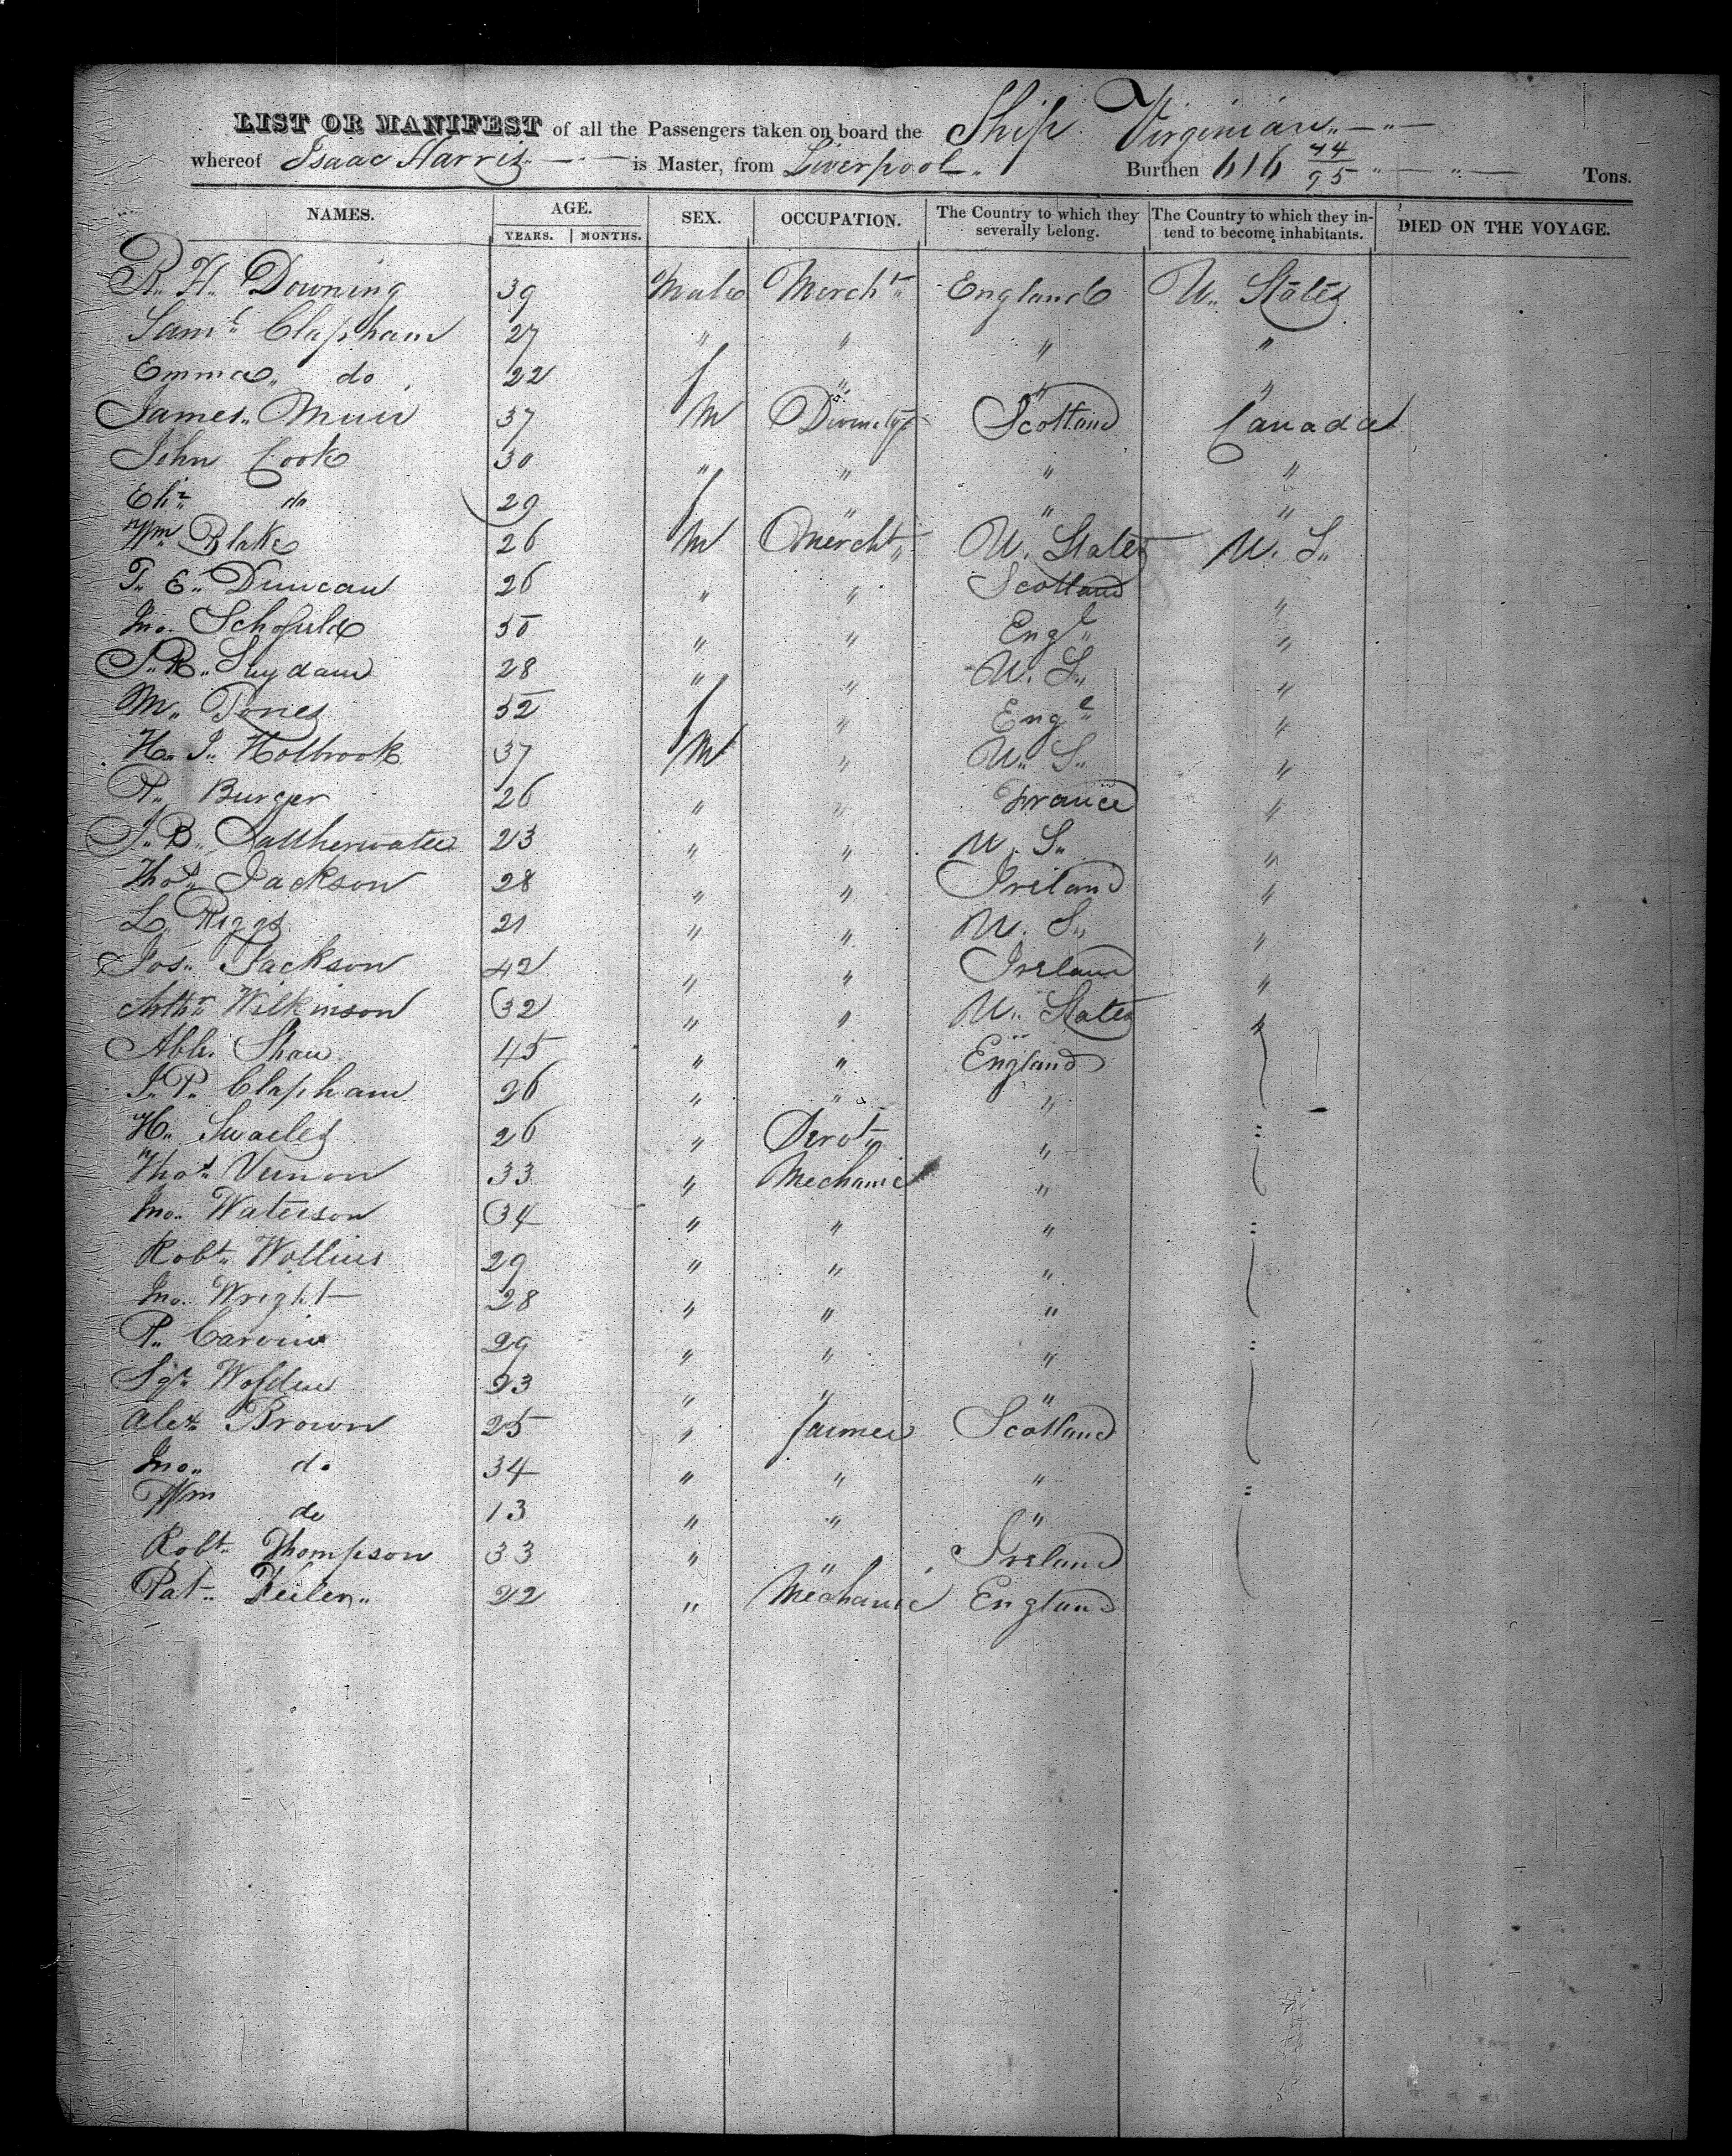 LIST OR MANIFEST of all the Passengers taken on board the Ship Virginian
whereof Isaac Harris is Master, from Liverpool Burthen 616 74/95 Tons.
NAMES. AGE. SEX. OCCUPATION. The Country to which they severally belong. The Country to which they intend to become inhabitants. DIED ON THE VOYAGE.
YEARS. MONTHS.
R. H. Downing 39 Male Mercht England U. States
Saml Clapham 27 " " " "
Emma do 22 f " " "
James Muir 37 M Divinity Scotland Canada
John Cook 30 " " " "
Eliz do 29 f " " "
Wm Blake 26 M Mercht U. States U. S.
T. E. Duncan 26 " " Scotland "
Jno. Schofield 50 " " Engd "
S. R. Suydam 28 " " U. S. "
M. Jones 52 f " Engd "
H. J. Holbrook 37 M " U. S. "
P. Burger 26 " " France "
J. B. 23 " " U. S. "
Thos Jackson 28 " " Ireland "
L. Riggs 21 " " U. S. "
Jos. Jackson 42 " " Ireland "
Arthr Wilkinson 32 " " U. States "
Abm. Shaw 45 " " England
J. P. Clapham 26 " " "
H. Swales 26 " Servt "
Thos Vernon 33 " Mechanic "
Jno. Waterson 34 " " "
Robt. 29 " " "
Jno. Wright 28 " " "
P. 29 " " "
23 " " "
Alex Brown 25 " farmer Scotland
Jno. do 34 " " "
Wm do 13 " " "
Robt. Thompson 33 " " Ireland
Pat. 22 " Mechanic England